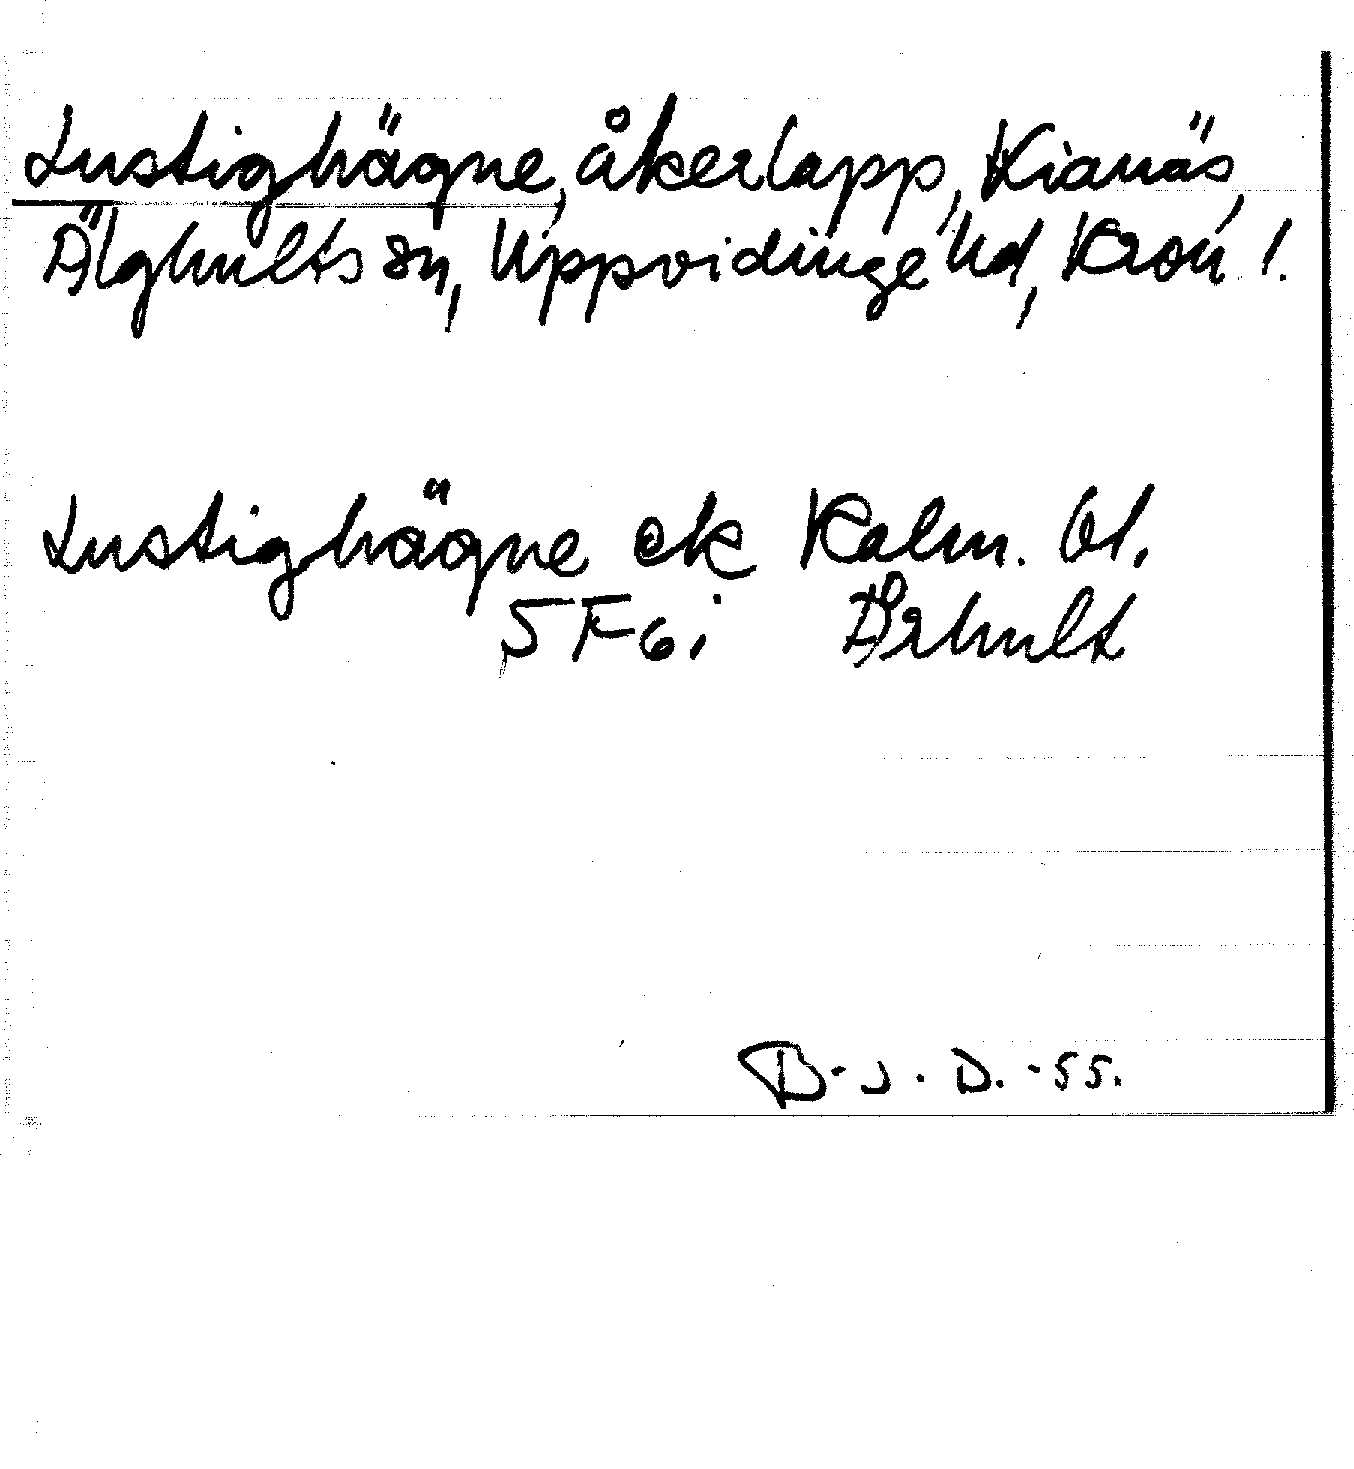 Lustighägne, åkerlapp, Kianäs,
Älghults sn, Uppvidinge hd, Kron l.
Lustighägne ek Kalm. bl.
5 F6i Århult
B-J. D. -55.